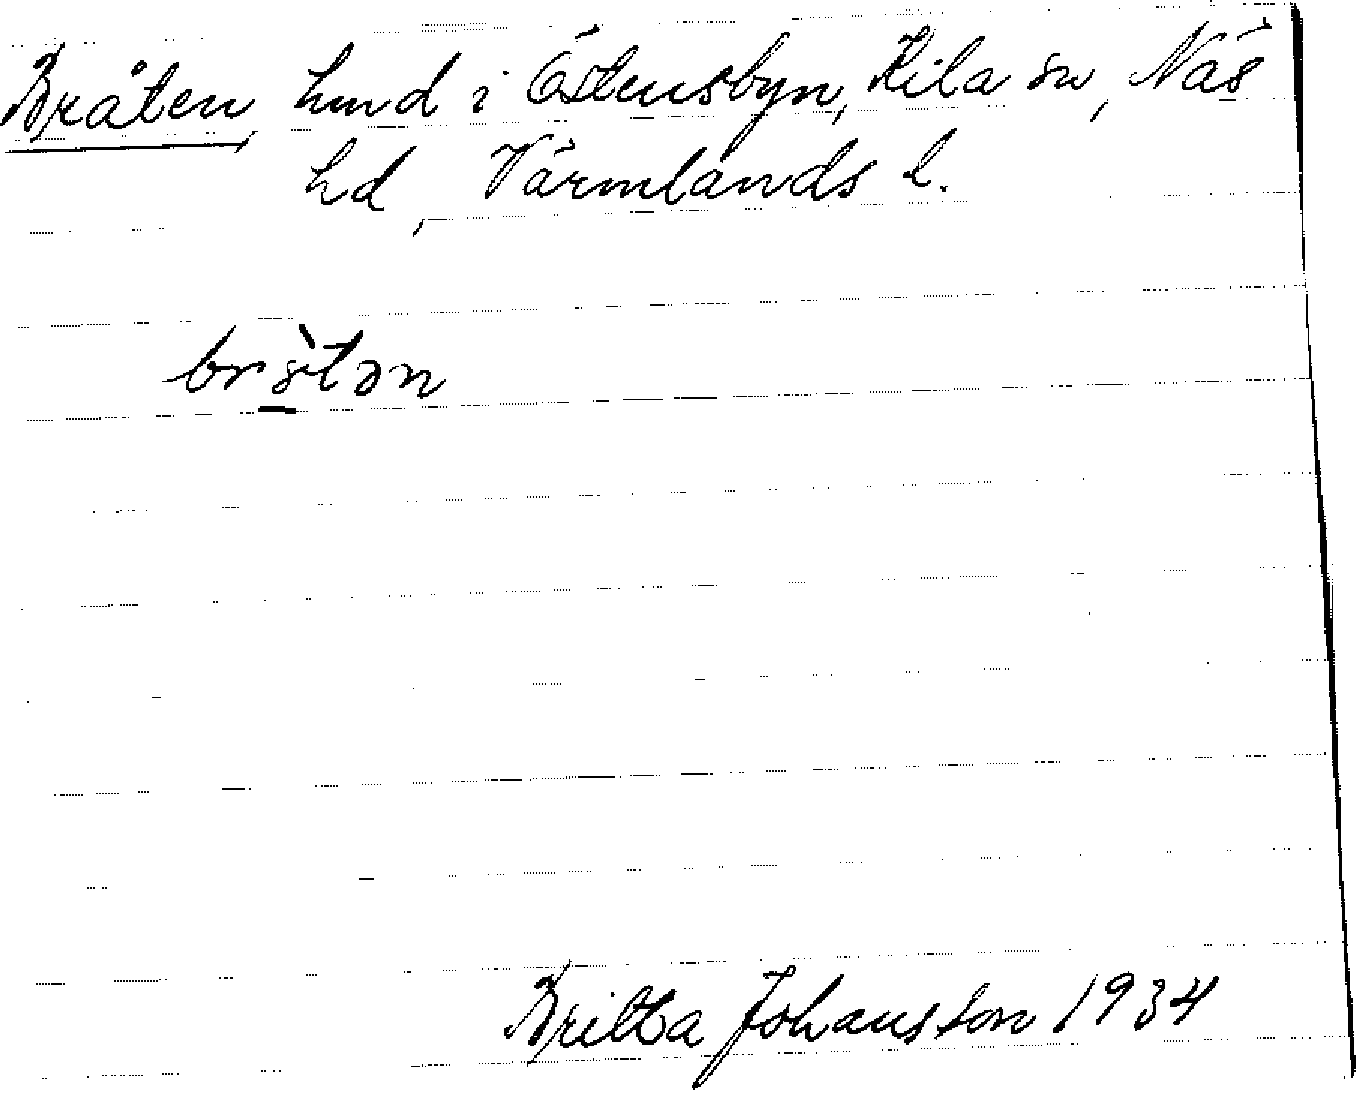 Bråten, hmd i Östensbyn, Kila sn, Näs
hd, Värmlands l.
Britta Johansson 1934